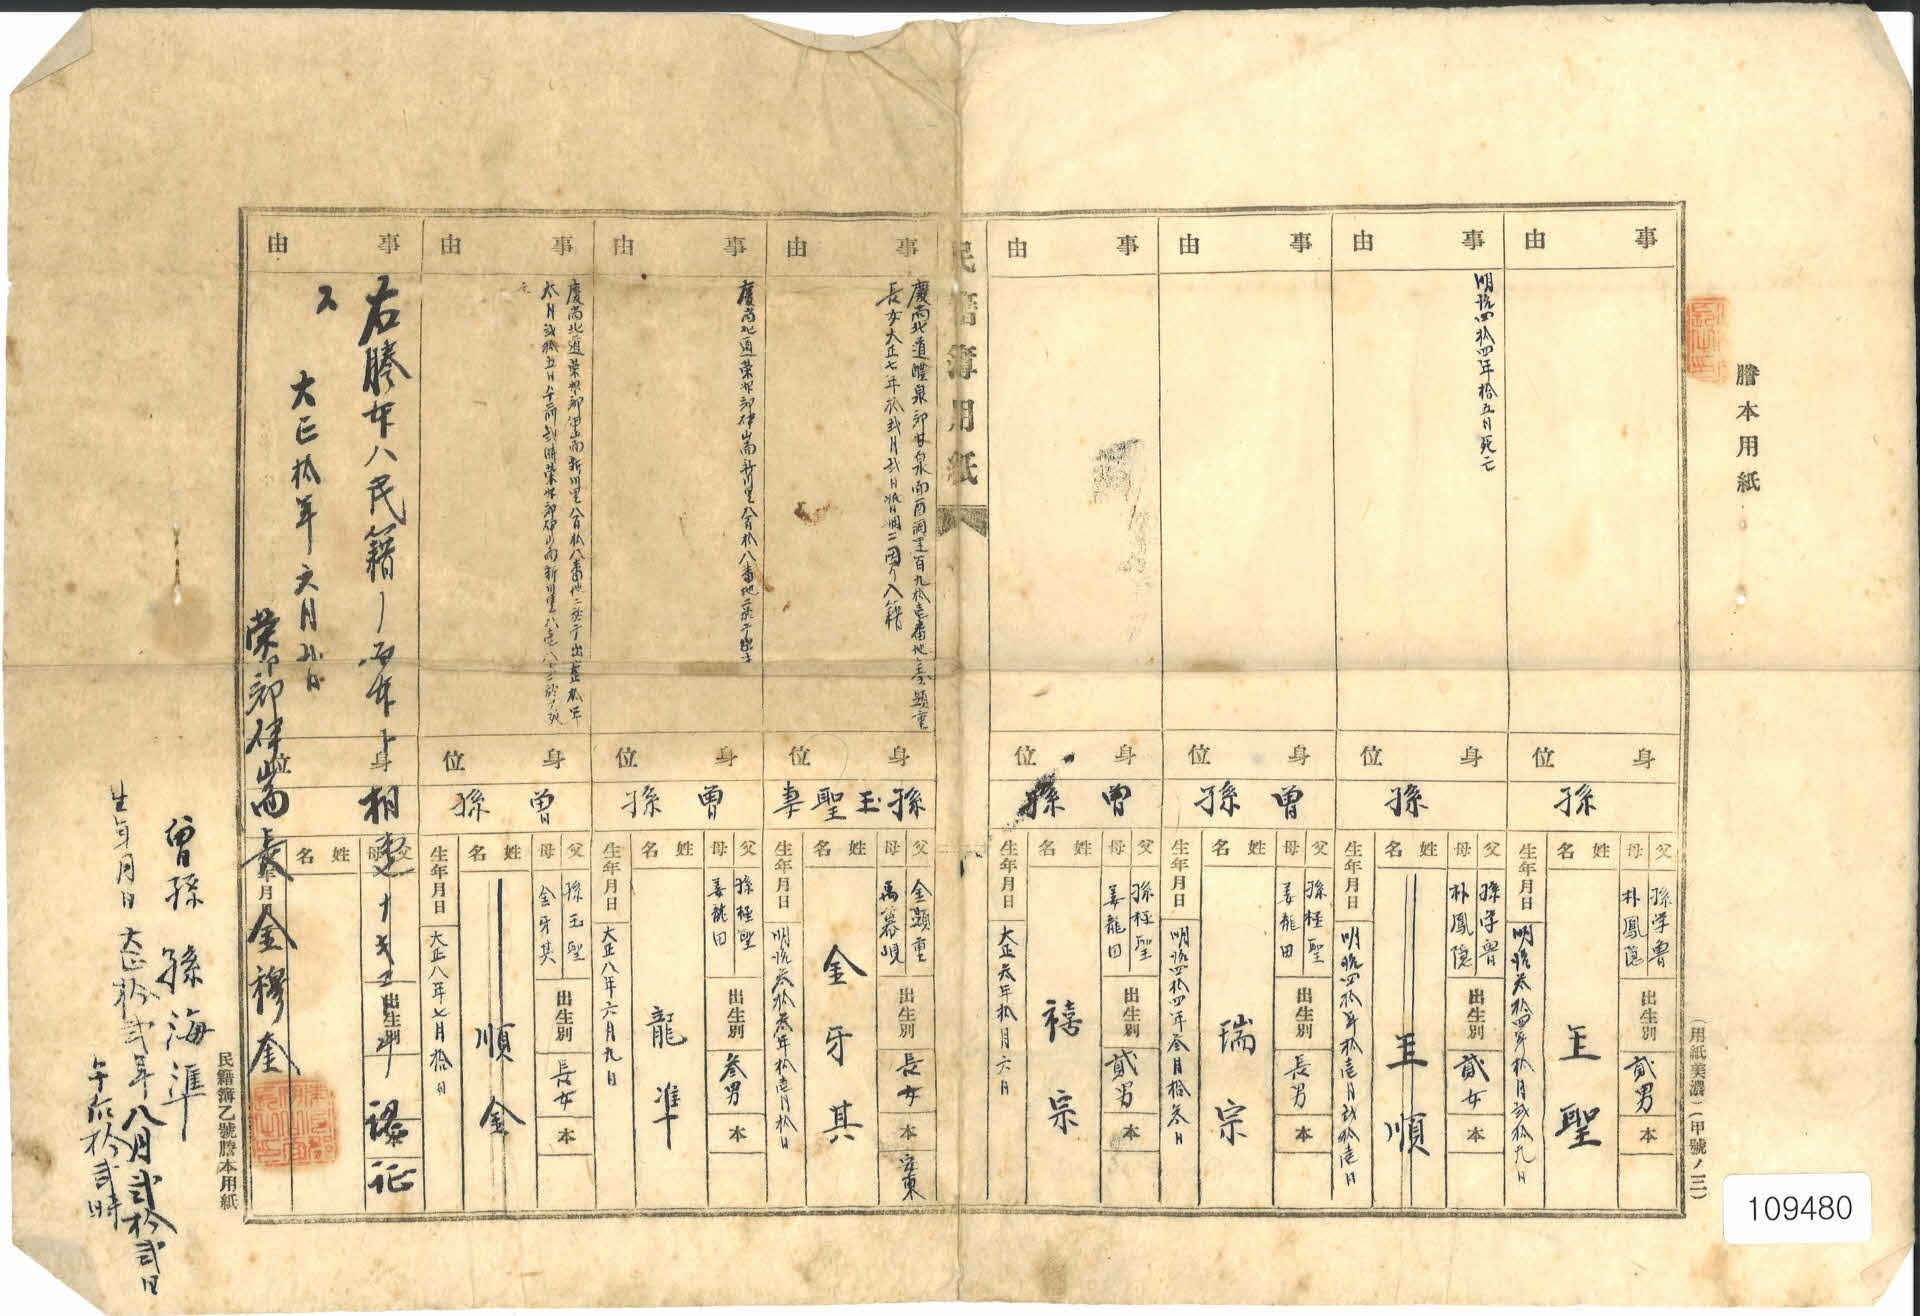 謄本用紙
(用紙美濃)(甲號ノ三)
事由
身位
孫
父 孫学魯
母 朴鳳隐
出生別 貳男
本
姓名 玉聖
生年月日 明治叁拾四年拾月弐拾九日
事由
明治四拾四年拾五日死亡
身位
孫
父 孫学魯
母 朴鳳隐
出生別 貳女
本
姓名 玉順
生年月日 明治四拾年拾壱月弐拾壱日
事由
身位
曽孫
父 孫極聖
母 姜龍田
出生別 長男
本
姓名 瑞宗
生年月日 明治四拾四年叁月拾叁日
事由
身位
曽孫
父 孫極聖
母 姜龍田
出生別 貳男
本
姓名 禧宗
生年月日 大正叁年拾月六日
民籍簿用紙
事由
慶尚北道醴泉郡甘泉面酉洞里百九拾壱番地金顕重
長女大正七年拾弐月弐日婚姻ニ因り入籍
身位
孫玉聖妻
父 金顕重
母
出生別 長女
本 安東
姓名 金牙其
生年月日 明治叁拾叁年拾壱月拾日
事由
慶尚北道榮州郡伊山面新川里八百拾八番地ニ於テ出生
身位
曽孫
父 孫極聖
母 姜龍田
出生別 叁男
本
姓名 龍準
生年月日 大正八年六月九日
事由
慶尚北道榮州郡伊山面新川里八百拾八番地ニ於テ出生大正拾年
六月弐拾五日午前弐時榮州郡伊山面新川里八百八ニ於テ死
亡
身位
曽孫
父 孫玉聖
母 金牙其
出生別 長女
本
姓名 順金
生年月日 大正八年七月拾日
事由
右謄本ハ民籍ノ原本ト相違ナキヲ認証
ス
大正拾年六月
榮州郡伊山面長 金穆奎
身位
父
母
出生別
姓名
生年月日
民籍簿乙號謄本用紙
曽孫 孫海準
生年月日 大正拾弐年八月弐拾弐日
午后拾弐時
109480